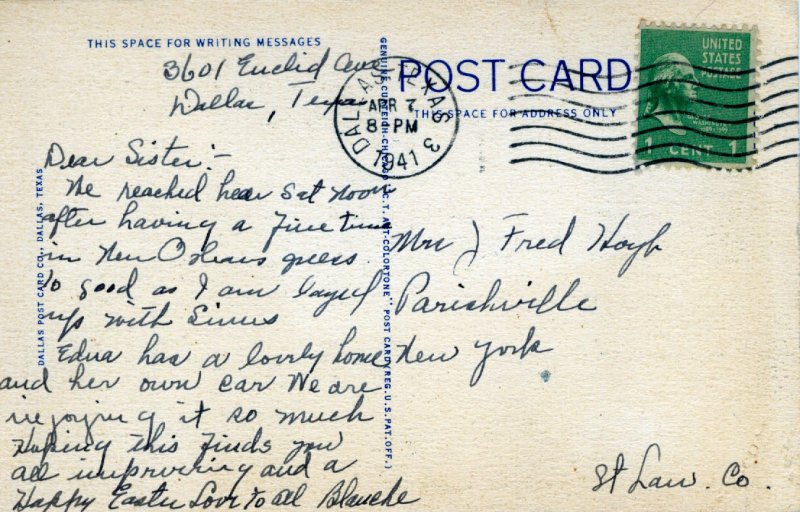 THIS SPACE FOR WRITING MESSAGES
3601 Euclid Ave
Dallas, Texas
Dear Sister:-
We reached hear Sat Noon
after having a fine time
in New Orleans guess
to good as I am layed
up with Sinus
Edna has a lovely home
and her own car We are
injoying it so much
Hoping this finds you
all improveing and a
Happy Easter Love to all Blanche
DALLAS POST CARD CO., DALLAS, TEXAS
GENUINE CURTEICH-CHICAGO "C.T. ART-COLORTONE" POST CARD (REG. U.S. PAT. OFF.)
POST CARD
THIS SPACE FOR ADDRESS ONLY
DALLAS, TEXAS 3
APR 7
8 PM
1941
UNITED
STATES
POSTAGE
WASHINGTON
1 CENT 1
Mrs J Fred Hoyt
Parishville
New York
St Law. Co.